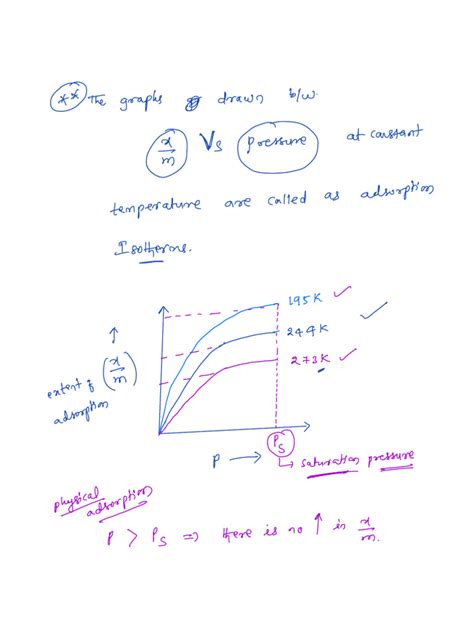 ** The graphs drawn b/w.
x/m Vs pressure at constant
temperature are called as adsorption
Isotherms.
195K
244K
273K
↑
extent of (x/m)
adsorption
P → Ps
↳ saturation pressure
physical
adsorption
P > Ps ⇒ there is no ↑ in x/m.